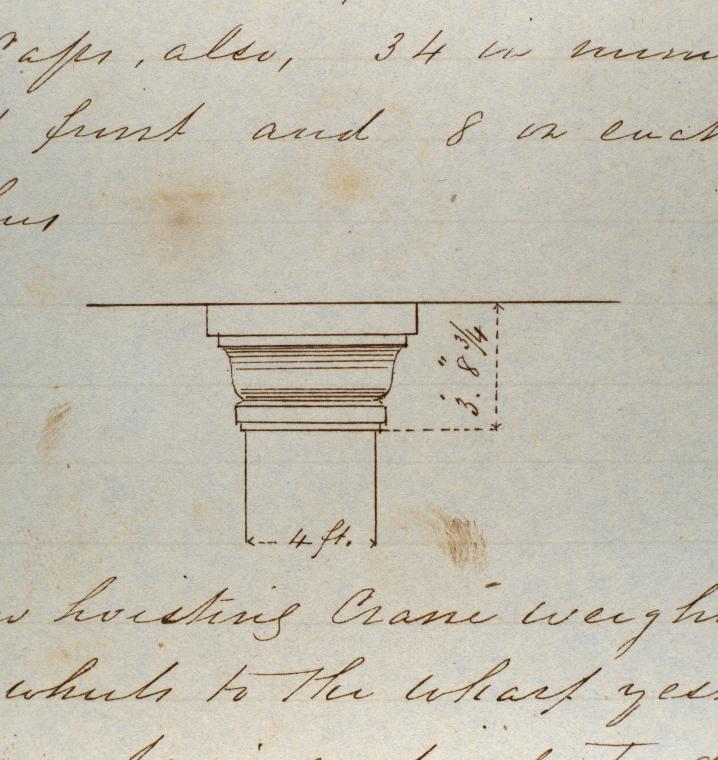 Caps, also, 34 in num
front and 8 on each
3.' 8 3/4"
4 ft.
hoisting Crane weigh
wheels to the wharf yes